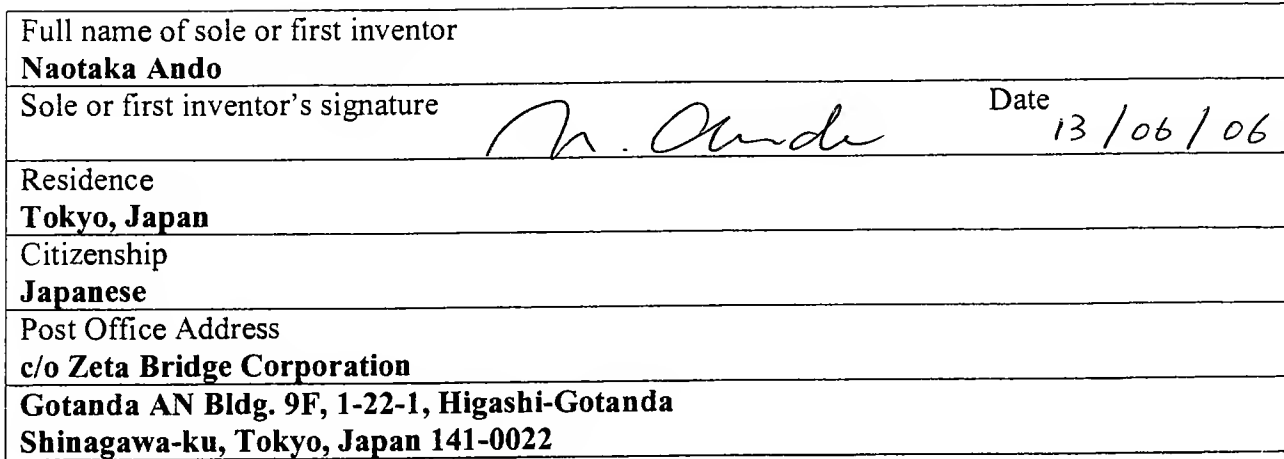 Full name of sole or first inventor
Naotaka Ando
Sole or first inventor's signature N. Ando Date 13/06/06
Residence
Tokyo, Japan
Citizenship
Japanese
Post Office Address
c/o Zeta Bridge Corporation
Gotanda AN Bldg. 9F, 1-22-1, Higashi-Gotanda
Shinagawa-ku, Tokyo, Japan 141-0022